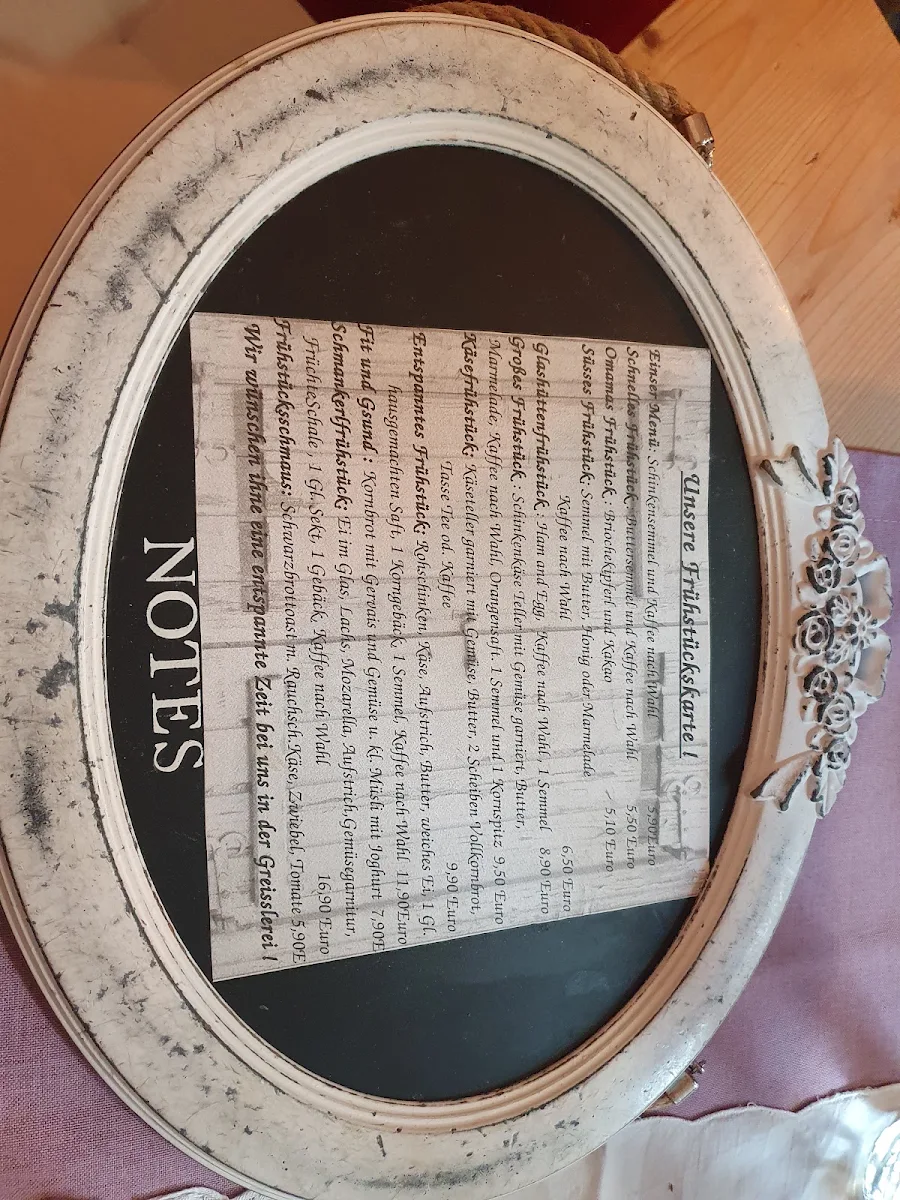 Unsere Frühstückskarte !
Einser Menü: Schinkensemmel und Kaffee nach Wahl 5,90Euro
Schnelles Frühstück: Buttersemmel und Kaffee nach Wahl 5,50 Euro
Omamas Frühstück : Briochekipferl und Kakao 5,10 Euro
Süsses Frühstück: Semmel mit Butter, Honig oder Marmelade
Kaffee nach Wahl 6,50 Euro
Glashüttenfrühstück : Ham and Egg, Kaffee nach Wahl, 1 Semmel 8,90 Euro
Großes Frühstück : Schinkenkäse Teller mit Gemüse garniert, Butter,
Marmelade, Kaffee nach Wahl, Orangensaft. 1 Semmel und 1 Kornspitz 9,50 Euro
Käsefrühstück: Käseteller garniert mit Gemüse, Butter, 2 Scheiben Vollkornbrot,
Tasse Tee od. Kaffee 9,90 Euro
Entspanntes Frühstück: Rohschinken, Käse, Aufstrich, Butter, weiches Ei, 1 Gl.
hausgemachten Saft, 1 Korngebäck, 1 Semmel, Kaffee nach Wahl 11,90Euro
Fit und Gsund : Kornbrot mit Gervais und Gemüse u. kl. Müsli mit Joghurt 7,90E
Schmankerlfrühstück: Ei im Glas, Lachs, Mozarella, Aufstrich,Gemüsegarnitur,
FrüchteSchale, 1 Gl. Sekt, 1 Gebäck, Kaffee nach Wahl 16,90 Euro
Frühstücksschmaus: Schwarzbrottoast m. Rauchsch.Käse, Zwiebel, Tomate 5,90E
Wir wünschen ihne eine entspannte Zeit bei uns in der Greisslerei !
NOTES